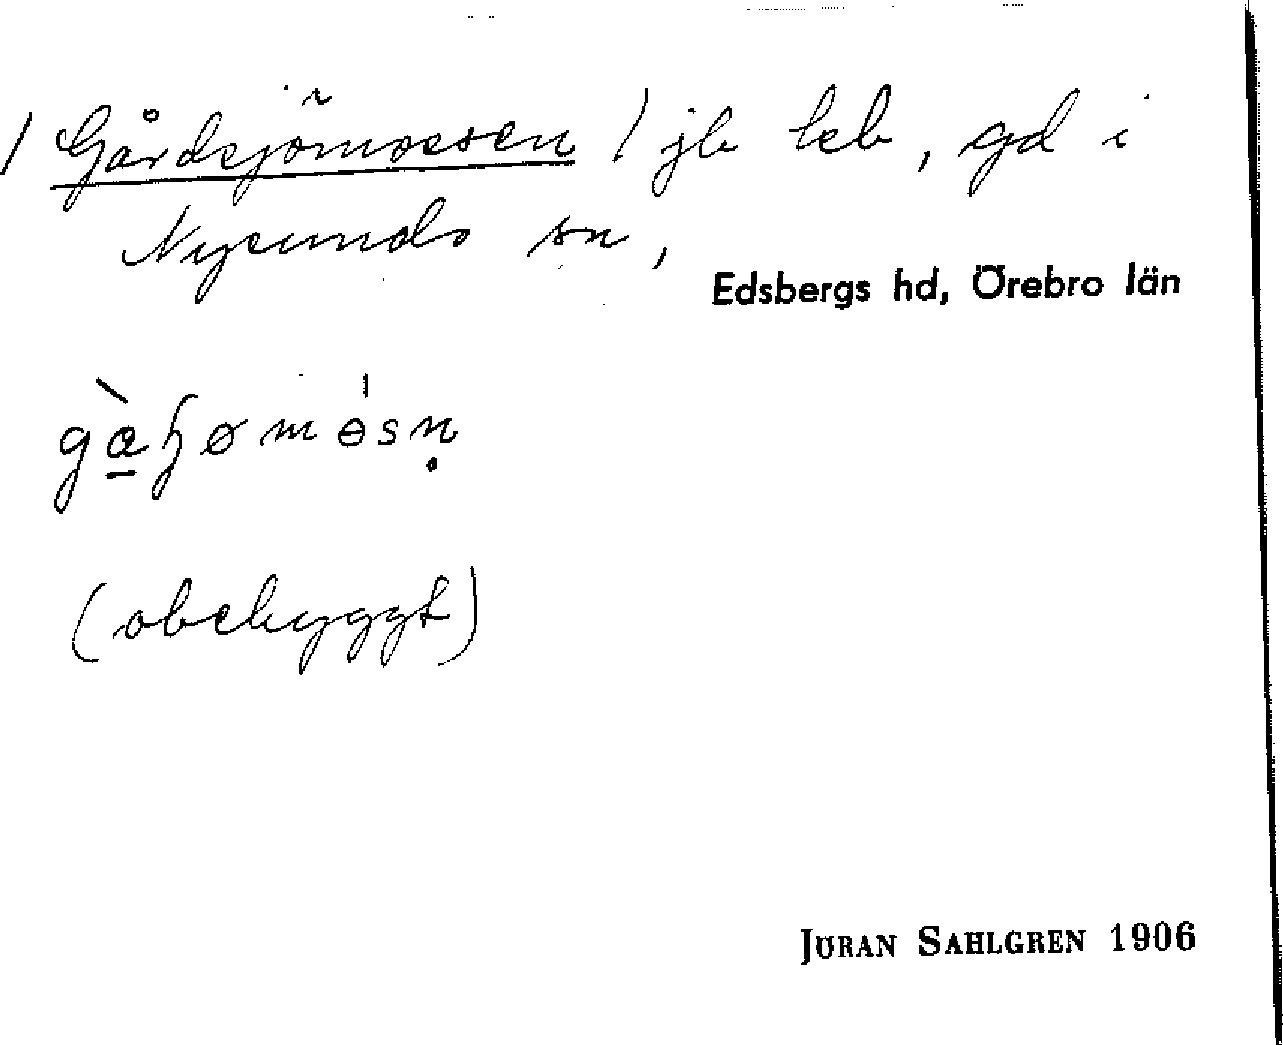 / Gårdsjömossen / jb leb, gd i
Nysunds sn,
Edsbergs hd, Örebro län
(obebyggt)
JÖRAN SAHLGREN 1906